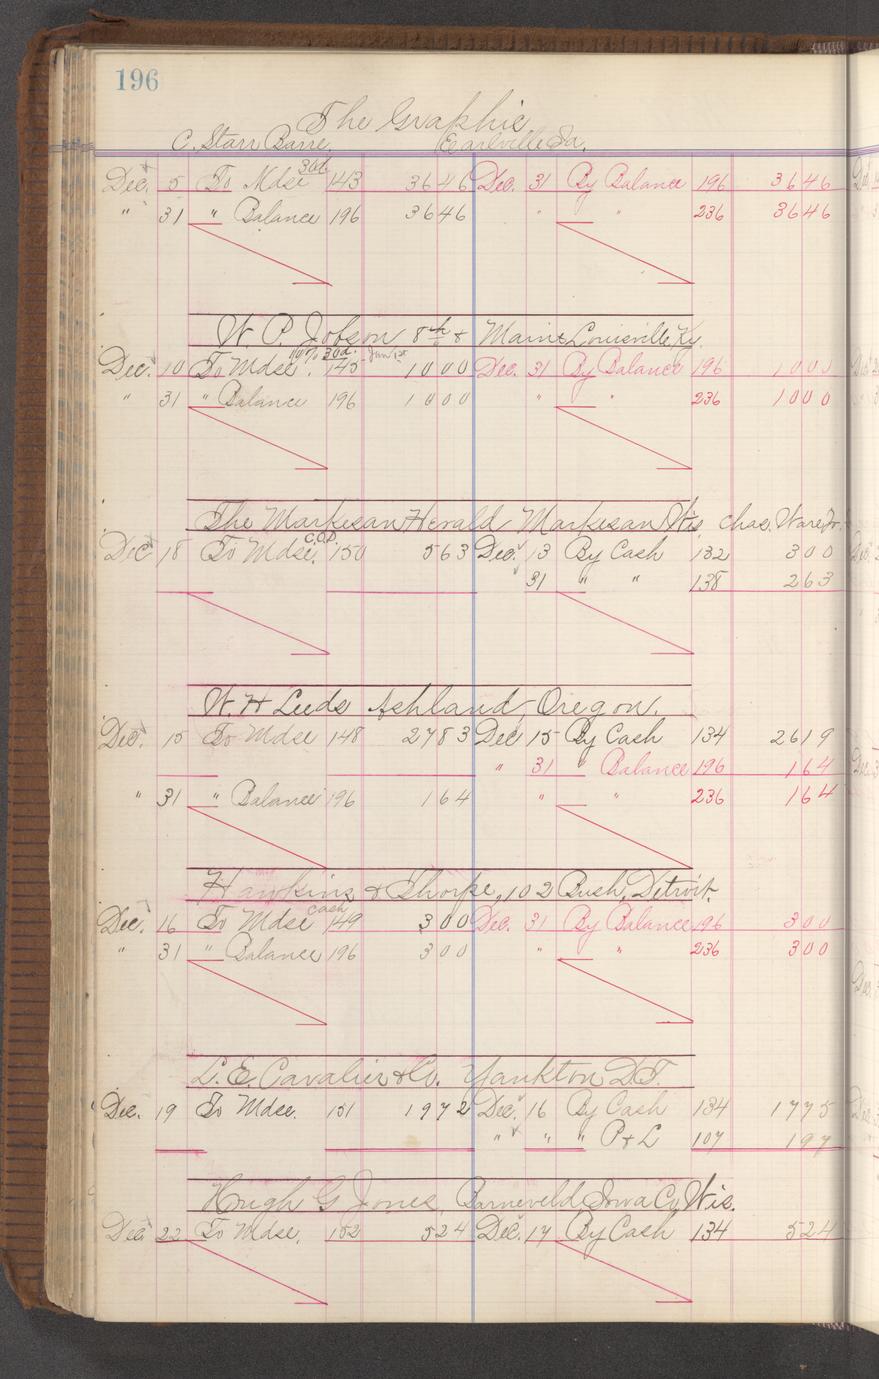 196
The Graphic
C. Starr Barre. Earlville Ia.
30d.
Dec. 5 To Mdse 143 3646 Dec. 31 By Balance 196 3646
" 31 " Balance 196 3646 " " 236 3646
W. P. Jobson 8th & Maine Louisville, Ky.
10% 30d. Jan 1st
Dec. 10 To Mdse. 145 1000 Dec. 31 By Balance 196 1000
" 31 " Balance 196 1000 " " 236 1000
The Markesan Herald Markesan Wis Chas. Ware Jr.
C.O.D.
Dec 18 To Mdse. 150 563 Dec. 13 By Cash 132 300
31 " " 138 263
W. H Leeds Ashland Oregon.
Dec. 15 To Mdse 148 2783 Dec 15 By Cash 134 2619
" 31 " Balance 196 164
" 31 " Balance 196 164 " " 236 164
Hawkins & Thorpe, 102 Bush, Detroit.
Cash
Dec. 16 To Mdse 149 300 Dec. 31 By Balance 196 300
" 31 " Balance 196 300 " " 236 300
L. E. Cavalier & Co. Yankton D.T.
Dec. 19 To Mdse. 151 1972 Dec. 16 By Cash 134 1775
" " " P & L 107 197
Hugh G Jones, Barneveld Iowa Co, Wis.
Dec 22 To Mdse, 152 524 Dec. 17 By Cash 134 524